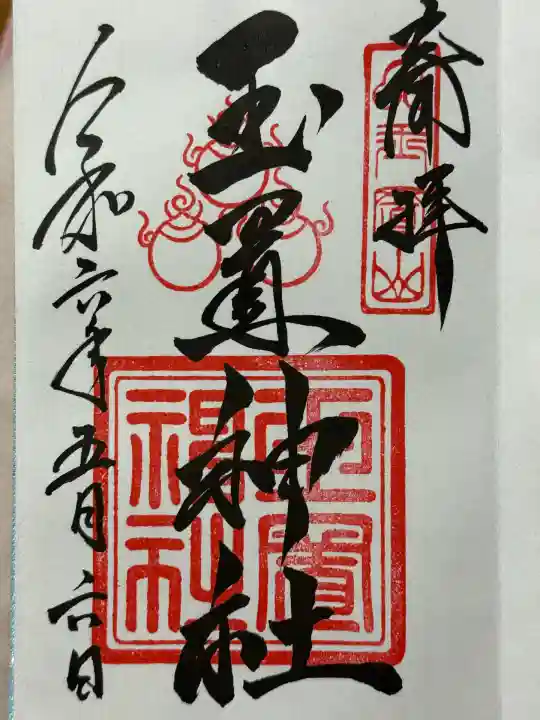 拝
玉置神社
令和六年五月六日
玉置
神社